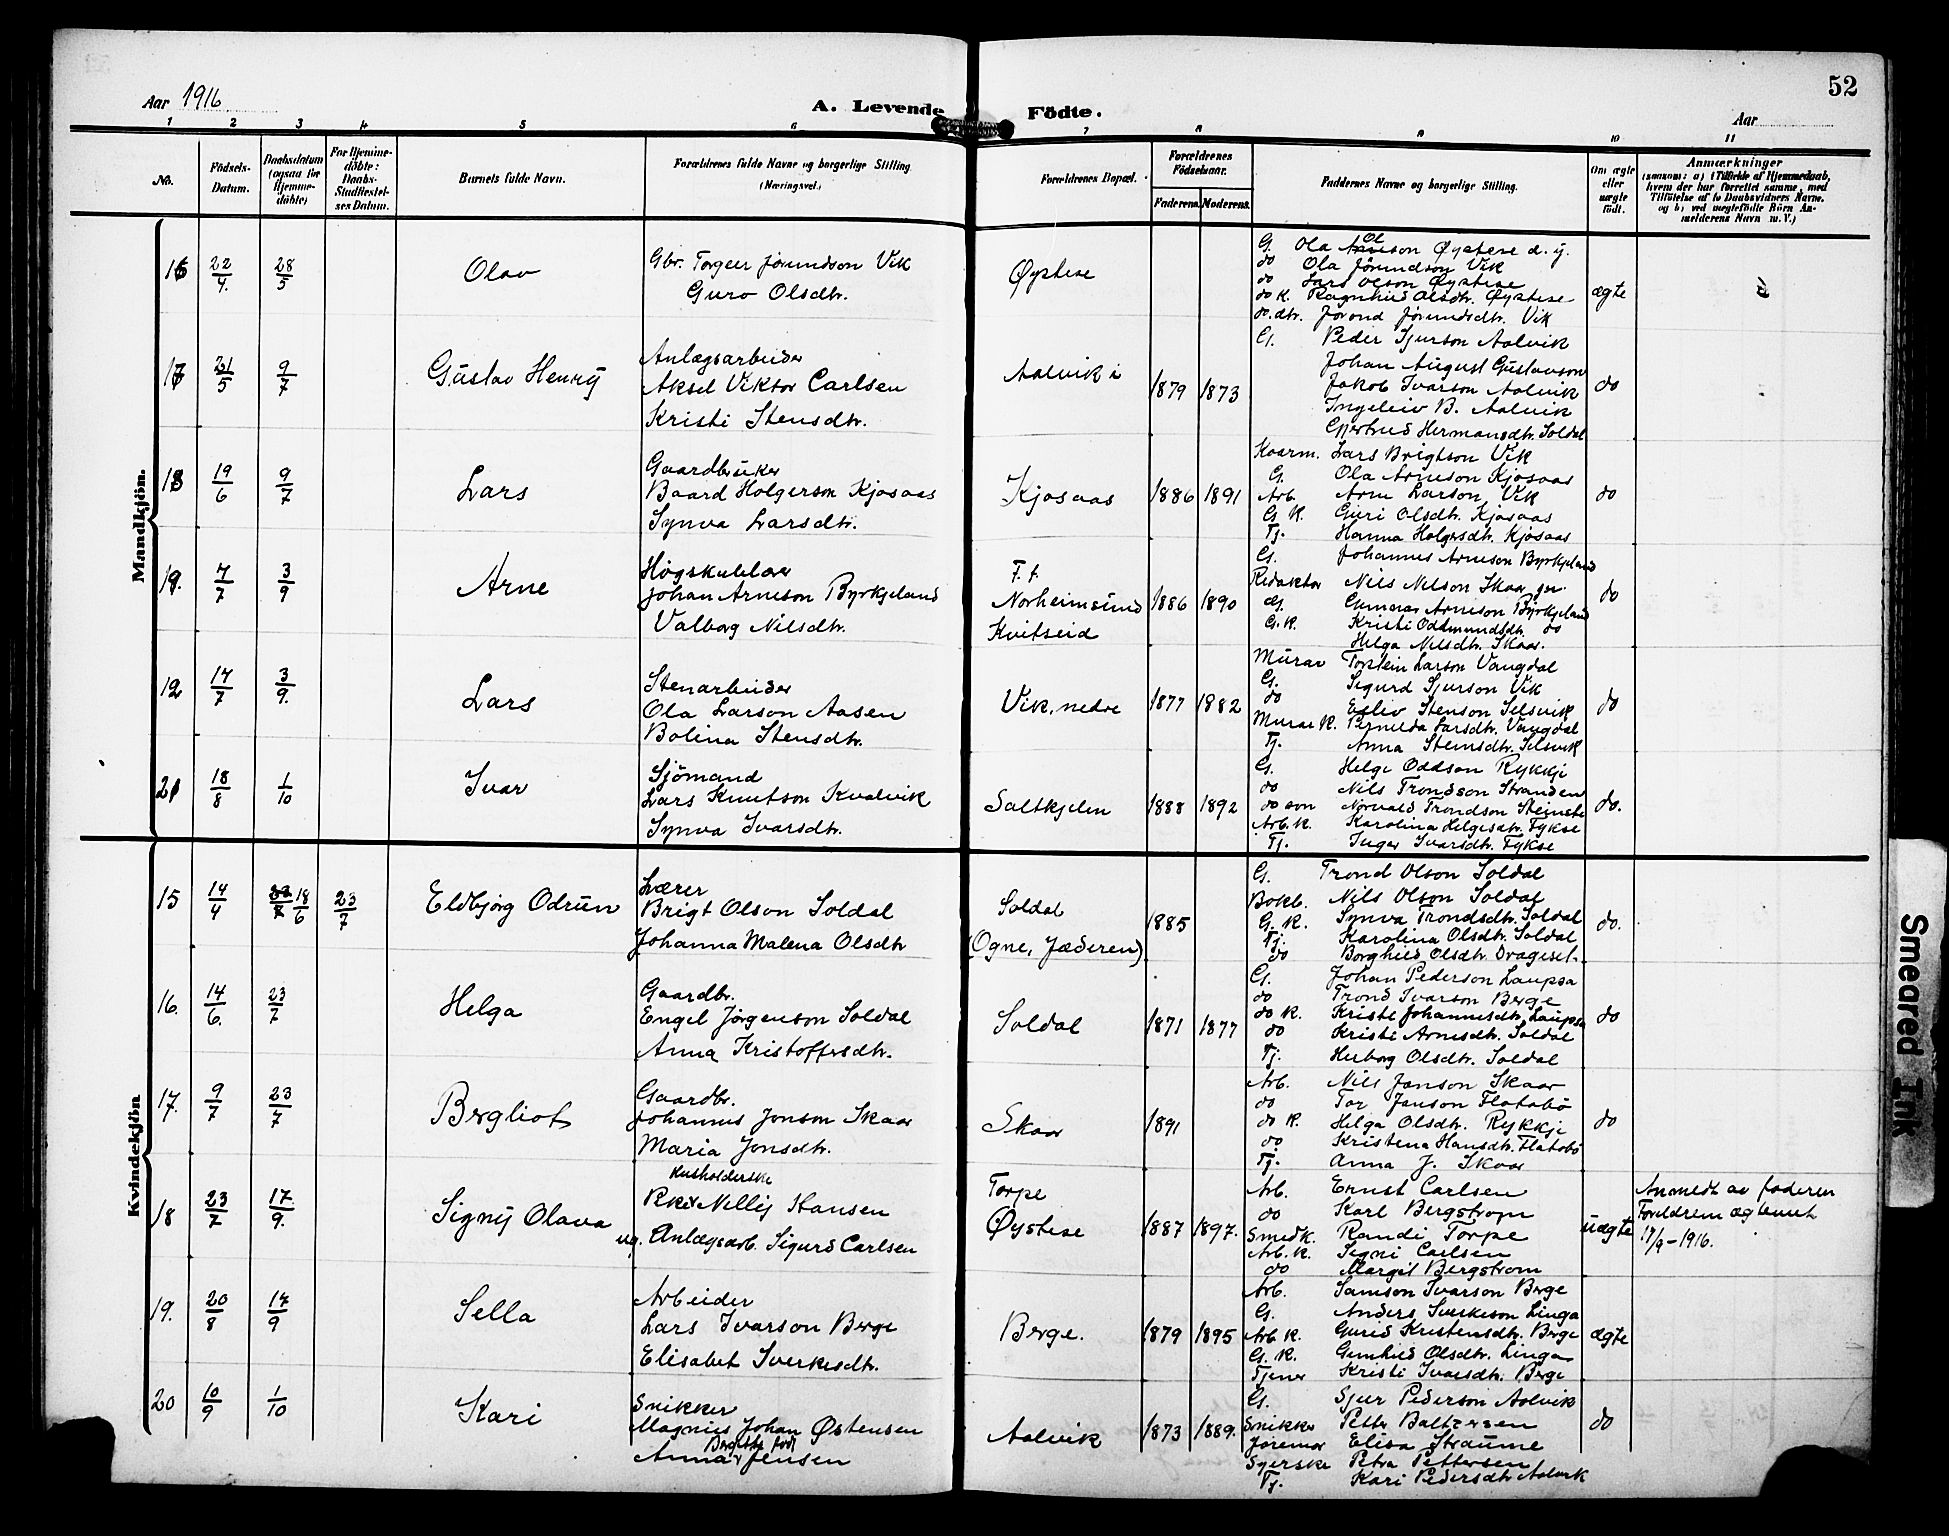 52
Aar 1916
A. Levende Födte.
Aar
1 2 3 4 5 6 7 8 9 10 11
No.
Födsels-Datum.
Daabsdatum (ogsaa for Hjemme-döbte)
For Hjemme-döbte: Daabs-Stadfæstel-ses Datum.
Barnets fulde Navn.
Forældrenes fulde Navne og borgerlige Stilling (Næringsvei.)
Forældrenes Bopæl.
Forældrenes Födselsaar.
Faderens. Moderens.
Faddernes Navne og borgerlige Stilling.
Om ægte eller uægte født.
Anmærkninger
(saasom: a) i Tilfælde af Hjemmedaab, hvem der har forrettet samme, med Tilföielse af to Daabsvidners Navne, og b) ved uægtefödte Börn An-melderens Navn m. V.)
Mandkjön.
16 22/4. 28/5 Olav
Gbr. Torgeir Jörundson Vik
Guro Olsdtr.
Øystese
G. Ola Olson Øystese d. y.
do Ola Jörundson Vik
do Lars Olson Øystese
do K. Ragnhild Olsdtr. Øystese
do. dtr. Jörond Jörundsdtr. Vik
ægte
17 21/5 9/7 Gustav Henry
Anlægsarbeider
Aksel Viktor Carlsen
Kristi Stensdtr.
Aalvik i
1879 1873
G. Peder Sjurson Aalvik
Johan August Gustavson
Jakob Ivarson Aalvik
Ingeleiv B. Aalvik
Gjertrud Hermansdtr. Soldal
do
18 19/6 9/7 Lars
Gaardbruker
Baard Holgerson Kjosaas
Synva Larsdtr.
Kjosaas
1886 1891
Kaarm. Lars Brigtson Vik
G. Ola Arneson Kjosaas
Arb. Arne Larson Vik
G. K. Guri Olsdtr. Kjosaas
Tj. Hanna Holgersdtr. Kjosaas
do
19. 7/7 3/9 Arne
Høgskulelærer
Johan Arneson Byrkjeland
Valborg Nilsdtr.
F. t.
Norheimsund
Kvitseid
1886 1890
G. Johannes Arneson Byrkjeland
Redaktør Nils Nilson Skaar jr.
G. Gunnar Arneson Byrkjeland
G. K. Kristi Oddmundsdtr. do
Helga Nilsdtr. Skaar.
do
17/7 3/9. Lars
Stenarbeider
Ola Larson Aasen
Bolina Stensdtr.
Vik, nedre
1877 1882
Murar Torstein Larson Vangdal
G. Sigurd Sjurson Vik
do Eiliv Stenson Selsvik
Murar K. Pernilda Larsdtr. Vangdal
Tj. Anna Steinsdtr. Selsvik
do
21 18/8 1/10 Ivar
Sjömand
Lars Knutson Kvalvik
Synva Ivarsdtr.
Saltkjelen
1888 1892
G. Helge Oddson Rykkje
do Nils Trondson Stranden
do søn Norvald Trondson
Arb. K. Karolina Helgesdtr. Fykse
Tj. Inger Ivarsdtr. Fykse
do.
Kvindekjön
15 14/4 18/6 23/7 Eldbjørg Odrun
Lærer
Brigt Olson Soldal
Johanna Malena Olsdtr
Soldal
(Ogne, Jæderen)
1885
G. Trond Olson Soldal
Bokb. Nils Olson Soldal
G. K. Synva Trondsdtr. Soldal
Tj. Karolina Olsdtr. Soldal
do Borghild Olsdtr. Drageset.
do.
16. 14/6. 23/7 Helga
Gaardbr.
Engel Jørgenson Soldal
Anna Kristoffersdtr.
Soldal
1871 1877
G. Johan Pederson Laupsa
do Trond Ivarson Berge
do K. Kristi Johannesdtr. Laupsa
do Kristi Arnesdtr. Soldal
Tj. Herborg Olsdtr. Soldal
do
17. 9/7 23/7 Bergliot
Gaardbr.
Johannes Jonson Skaar
Maria Jonsdtr.
Skaar
1891
Arb. Nils Janson Skaar
do Tor Janson Flatabö
do K. Helga Olsdtr. Rykkje
do Kristena Hansdtr. Flatabö
Tj. Anna J. Skaar
do
18 23/7 17/9. Signy Olava
Husholderske
Pike Nelly Hansen
ug. Anlægsarb. Sigurd Carlsen
Torpe
Øystese
1887 1897.
Arb. Ernst Carlsen
do Karl Bergstrom
Smedk. Randi Torpe
Arb. K. Signi Carlsen
do Margit Bergstrom
uægte
Anmeldt av faderen
Foreldrene ægteviet
17/9-1916.
19. 20/8 17/9 Sella
Arbeider
Lars Ivarson Berge
Elisabet Sverkesdtr.
Berge.
1879 1895
Arb. Samson Ivarson Berge
G. Anders Sverkeson Linga
Arb K. Gurid Kristensdtr. Berge
G. K. Gunhild Olsdtr. Linga
Tjener Kristi Ivarsdtr. Berge
ægte
20 10/9 1/10 Kari
Snikker
Magnus Johan Østensen
Bergitte født
Anna Jensen
Aalvik
1873 1889.
G. Sjur Pederson Aalvik
Snikker Petter Baltzersen
Jøremor Elisa Straume
Syerske Petra Pettersen
Tj. Kari Pedersdtr Aalvik
do
Smeared Ink